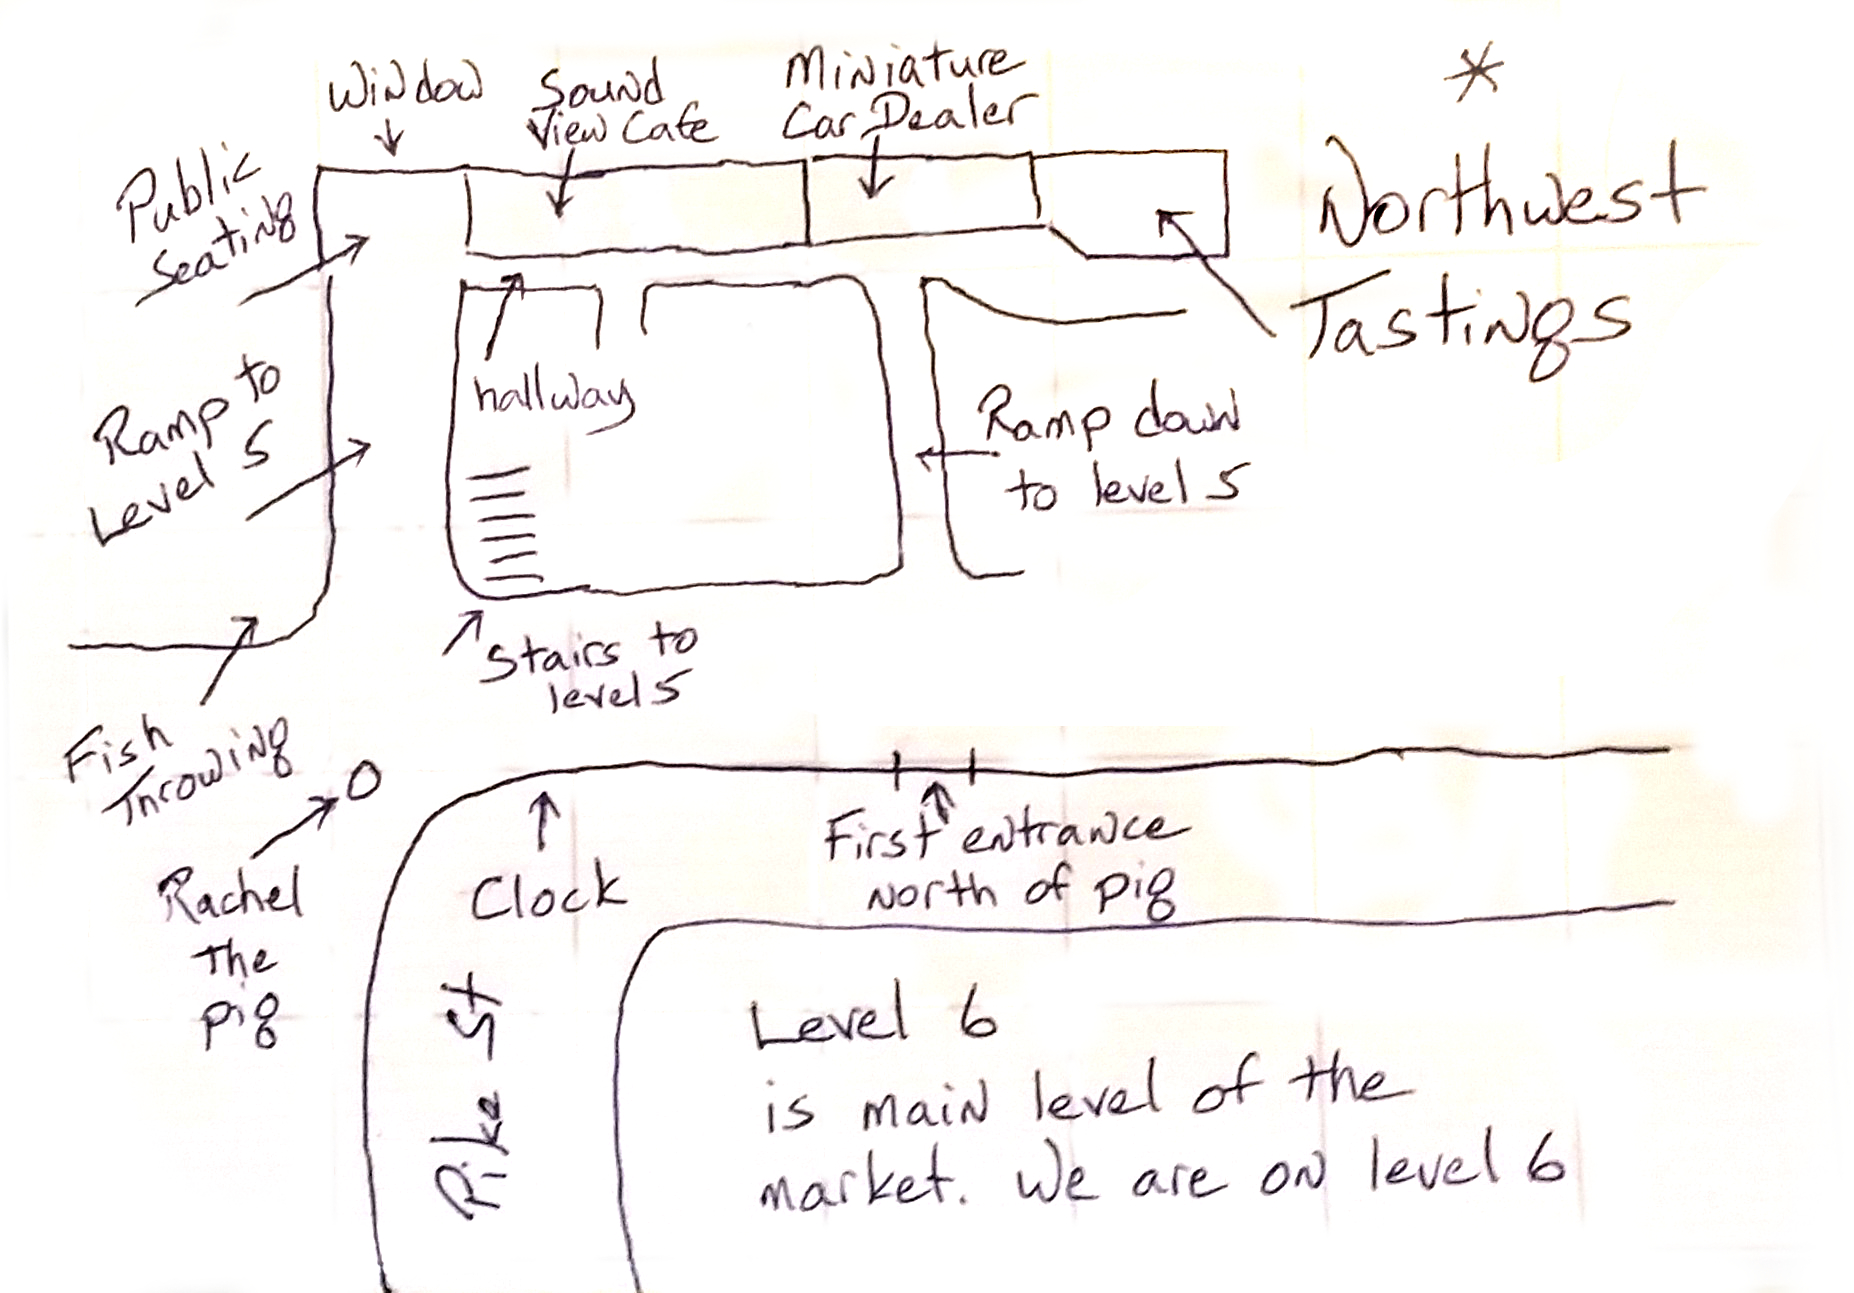 Window
Sound
View Cafe
Miniature
Car Dealer
*
Northwest
Tastings
Public
Seating
hallway
Ramp to
Level 5
Ramp down
to level 5
Stairs to
level 5
Fish
Throwing
Rachel
the
pig
Clock
First entrance
North of pig
Pike St
Level 6
is main level of the
market. We are on level 6